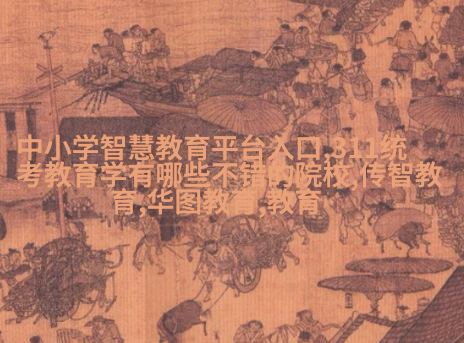 中小学智慧教育平台入口,311统
考教育学有哪些不错的院校,传智教
育,华图教育,教育